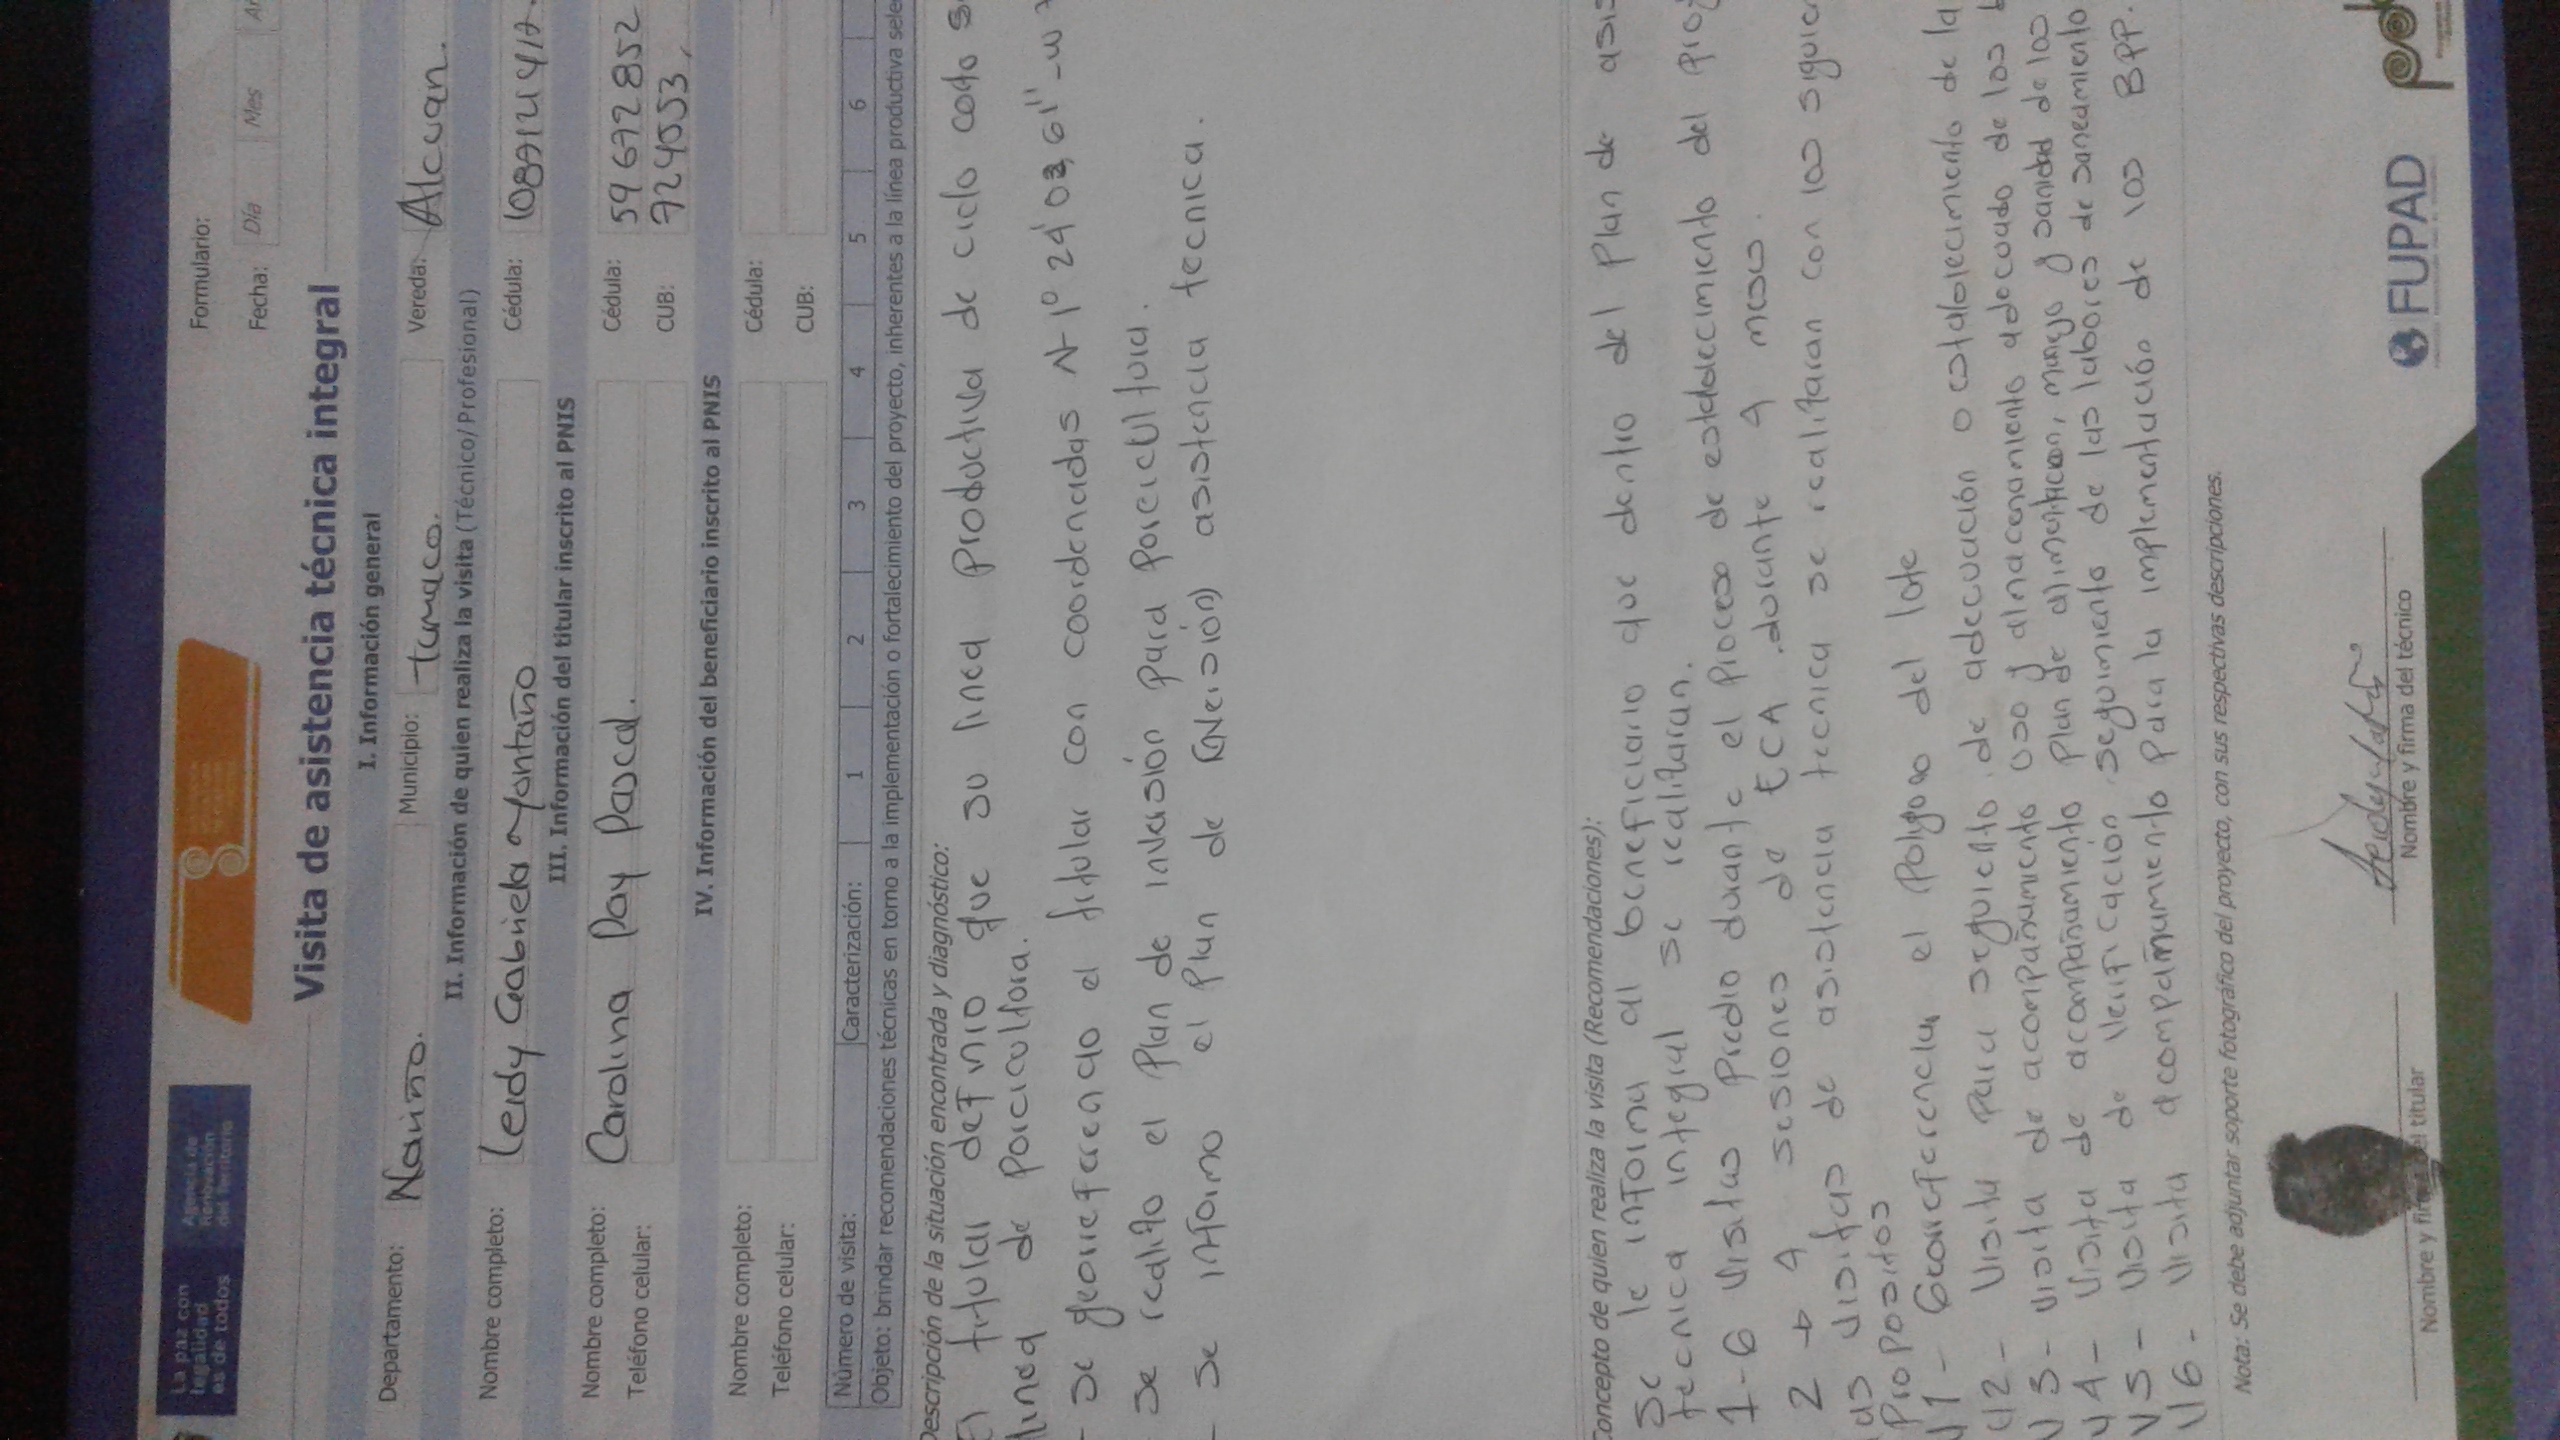 La paz con
legalidad
es de todos
Agencia de
Renovación
del Territorio
Formulario:
Fecha: Día Mes
Visita de asistencia técnica integral
I. Información general
Departamento: Nariño. Municipio: tumaco. Vereda: Alcuan.
II. Información de quien realiza la visita (Técnico/ Profesional)
Nombre completo: Leidy Gabriela Montaño Cédula:
III. Información del titular inscrito al PNIS
Nombre completo: Carolina Pay Pascal. Cédula: 59672852
Teléfono celular: CUB: 7245053
IV. Información del beneficiario inscrito al PNIS
Nombre completo: Cédula:
Teléfono celular: CUB:
Número de visita: Caracterización: 1 2 3 4 5 6
Objeto: brindar recomendaciones técnicas en torno a la implementación o fortalecimiento del proyecto, inherentes a la línea productiva
Descripción de la situación encontrada y diagnóstico:
El titular definio que su linea Productiva de ciclo corto
linea de Poricultora.
- Se georreferencio el titular con coordenadas N-1° 24' 03,61"-W
- Se realito el Plan de inversión para Poricultora.
- Se informo el Plan de (Nersión) asistencia tecnica.
Concepto de quien realiza la visita (Recomendaciones):
Se le informa al beneficiario que dentro del Plan de
tecnica integral se realitaran.
1-6 Visitas Predio durante el Proceso de establecimiento del
2 → 4 sesiones de ECA durante 4 meses.
las Visitas de asistencia tecnica se realitaran con los
Propositos
V1 - Georreferenciar el Polygono del lote
V2 - Visita Para seguiento de adecuación o establecimiento de la
V3 - Visita de acompañamiento uso y almacenamiento adecuado de los
V4 - Visita de acompañamiento Plan de alimentacion, manejo y sanidad de los
V5 - Visita de Verificación seguimiento de las labores de saneamiento
V6 - Visita acompañamiento Para la implementación de las BPP.
Nota: Se debe adjuntar soporte fotográfico del proyecto, con sus respectivas descripciones.
Nombre y firma del titular
Nombre y firma del técnico
FUPAD